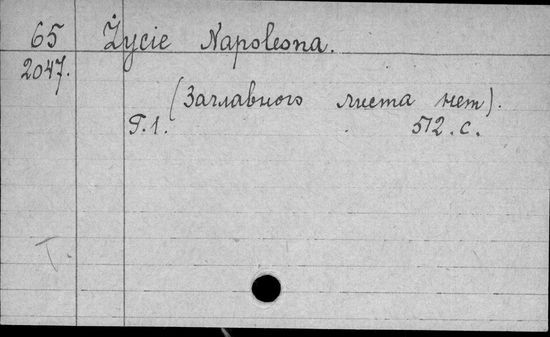 65 Życie Napoleona.
2047.
(Заглавного листа нет).
Т.1. 512.с.
Т.